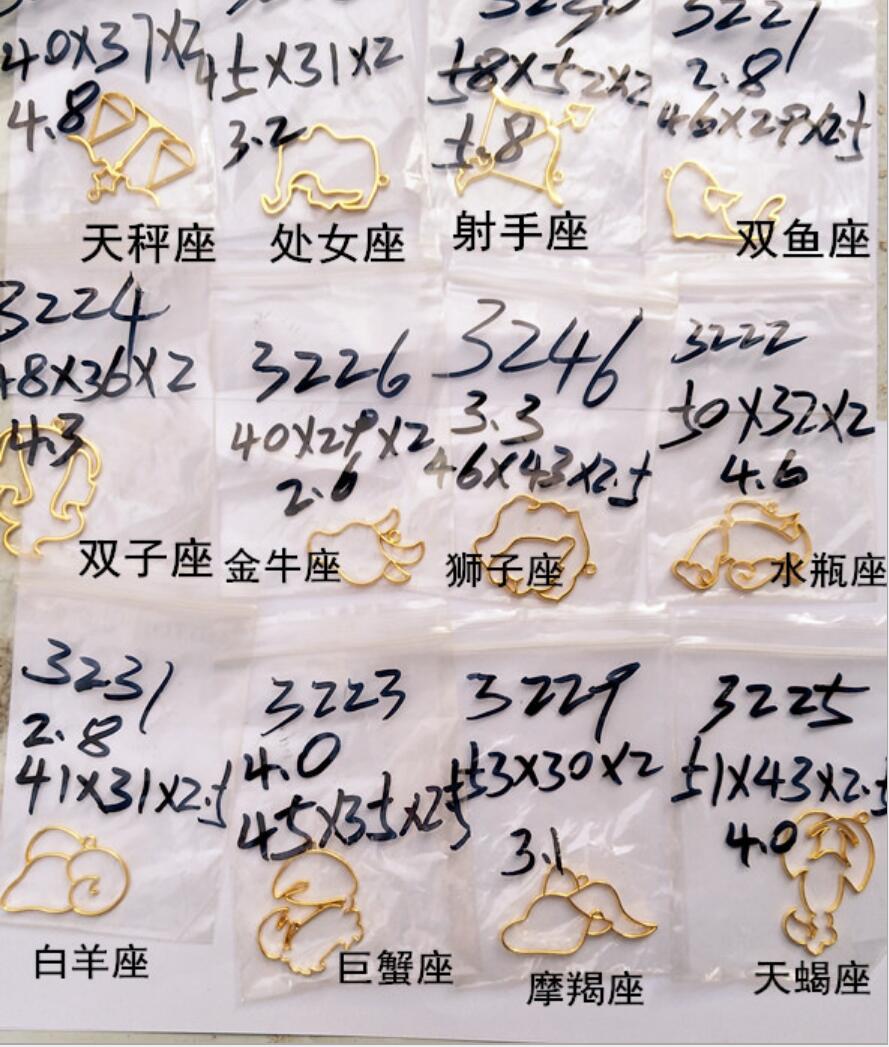 40X37X2
4.8
天秤座
45X31X2
3.2
处女座
58X52X2
5.8
射手座
3227
2.8
46X29X2.5
双鱼座
3224
48X36X2
4.3
双子座
3226
40X29X2
2.6
金牛座
3246
3.3
46X43X2.5
狮子座
3222
50X32X2
4.6
水瓶座
3231
2.8
41X31X2.5
白羊座
3223
4.0
45X35X2.5
巨蟹座
3229
53X30X2
3.1
摩羯座
3225
51X43X2.5
4.0
天蝎座